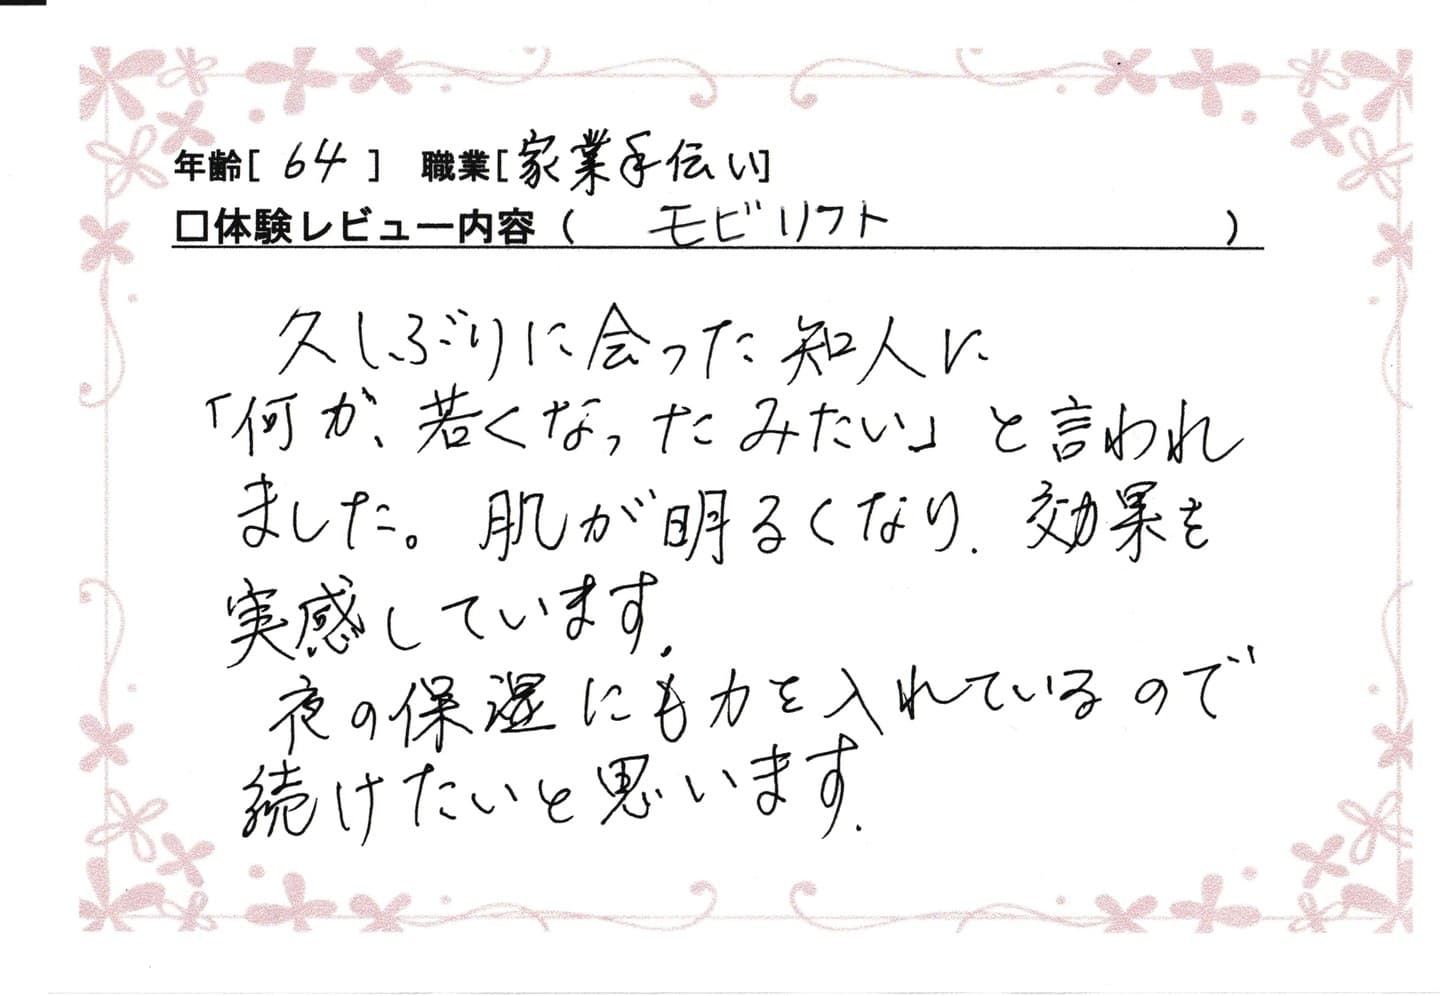 年齢[ 64 ] 職業[家業手伝い]
□体験レビュー内容 ( モビリフト )
久しぶりに会った知人に
「何か、若くなったみたい」と言われ
ました。肌が明るくなり、効果を
実感しています。
夜の保湿にも力を入れているので
続けたいと思います。